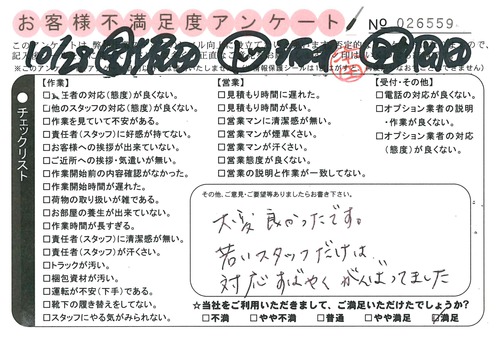 お客様不満足度アンケート
No 026559
10/28
チェックリスト
【作業】
□責任者の対応(態度)が良くない。
□他のスタッフの対応(態度)が良くない。
□作業を見ていて不安がある。
□責任者(スタッフ)に好感が持てない。
□お客様への挨拶が出来ていない。
□ご近所への挨拶・気遣いが無い。
□作業開始前の内容確認がなかった。
□作業開始時間が遅れた。
□荷物の取り扱いが雑である。
□お部屋の養生が出来ていない。
□作業時間が長すぎる。
□責任者(スタッフ)に清潔感が無い。
□責任者(スタッフ)が汗くさい。
□トラックが汚い。
□梱包資材が汚い。
□運転が不安(下手)である。
□靴下の履き替えをしてない。
□スタッフにやる気がみられない。
【営業】
□見積もり時間に遅れた。
□見積もり時間が長い。
□営業マンに清潔感が無い。
□営業マンが煙草くさい。
□営業マンが汗くさい。
□営業態度が良くない。
□営業の説明と作業が一致してない。
【受付・その他】
□電話の対応が良くない。
□オプション業者の説明
・作業が良くない。
□オプション業者の対応
(態度)が良くない。
その他、ご意見・ご要望等ありましたらお書き下さい。
大変良かったです。
若いスタッフだけは
対応すばやくがんばってました
☆当社をご利用いただきまして、ご満足いただけたでしょうか?
□不満 □やや不満 □普通 □やや満足 □満足